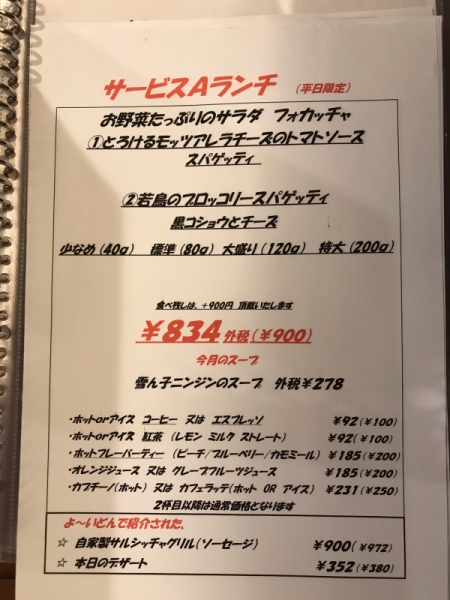 サービスAランチ (平日限定)
お野菜たっぷりのサラダ フォカッチャ
①とろけるモッツアレラチーズのトマトソース
スパゲッティ
②若鳥のブロッコリースパゲッティ
黒コショウとチーズ
少なめ(40g) 標準(80g) 大盛り(120g) 特大(200g)
食べ残しは、+900円 頂戴いたします
¥834外税(¥900)
今月のスープ
雪ん子ニンジンのスープ 外税¥278
・ホットorアイス コーヒー 又は エスプレッソ ¥92(¥100)
・ホットorアイス 紅茶 (レモン ミルク ストレート) ¥92(¥100)
・ホットフレーバーティー (ピーチ/ブルーベリー/カモミール) ¥185(¥200)
・オレンジジュース 又は グレープフルーツジュース ¥185(¥200)
・カプチーノ(ホット) 又は カフェラッテ(ホット OR アイス) ¥231(¥250)
2杯目以降は通常価格となります
よ～いどんで紹介された、
☆ 自家製サルシッチャグリル(ソーセージ) ¥900(¥972)
☆ 本日のデザート ¥352(¥380)